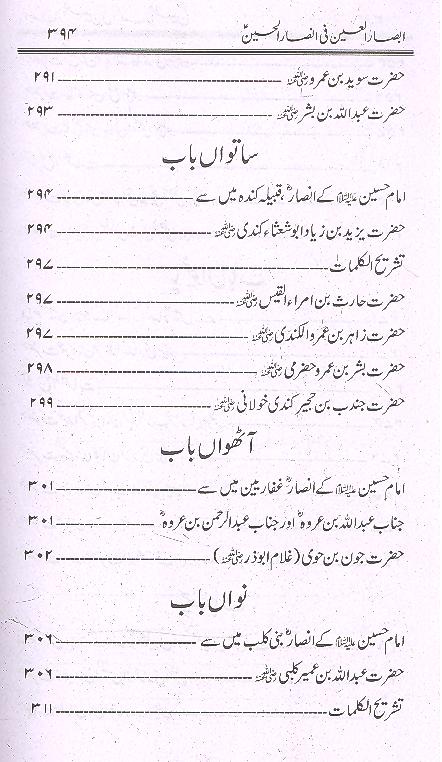 ابصار العین فی انصار الحسینؑ ۳۹۴
حضرت سوید بن عمرو رضی اللہ عنہ ۲۹۱
حضرت عبداللہ بن بشر رضی اللہ عنہ ۲۹۳
ساتواں باب
امام حسین علیہ السلام کے انصارؓ، قبیلہ کندہ میں سے ۲۹۴
حضرت یزید بن زیاد ابو شعثاء کندی رضی اللہ عنہ ۲۹۴
تشریح الکلمات ۲۹۷
حضرت حارث بن امراء القیس رضی اللہ عنہ ۲۹۷
حضرت زاہر بن عمرو الکندی رضی اللہ عنہ ۲۹۷
حضرت بشر بن عمرو حضرمی رضی اللہ عنہ ۲۹۸
حضرت جندب بن حجیر کندی خولانی رضی اللہ عنہ ۲۹۹
آٹھواں باب
امام حسین علیہ السلام کے انصارؓ غفاریین میں سے ۳۰۱
جناب عبداللہ بن عروہؓ اور جناب عبدالرحمن بن عروہؓ ۳۰۱
حضرت جون بن حوی (غلام ابوذر رضی اللہ عنہ) ۳۰۲
نواں باب
امام حسین علیہ السلام کے انصارؓ بنی کلب میں سے ۳۰۶
حضرت عبداللہ بن عمیر کلبی رضی اللہ عنہ ۳۰۶
تشریح الکلمات ۳۱۱